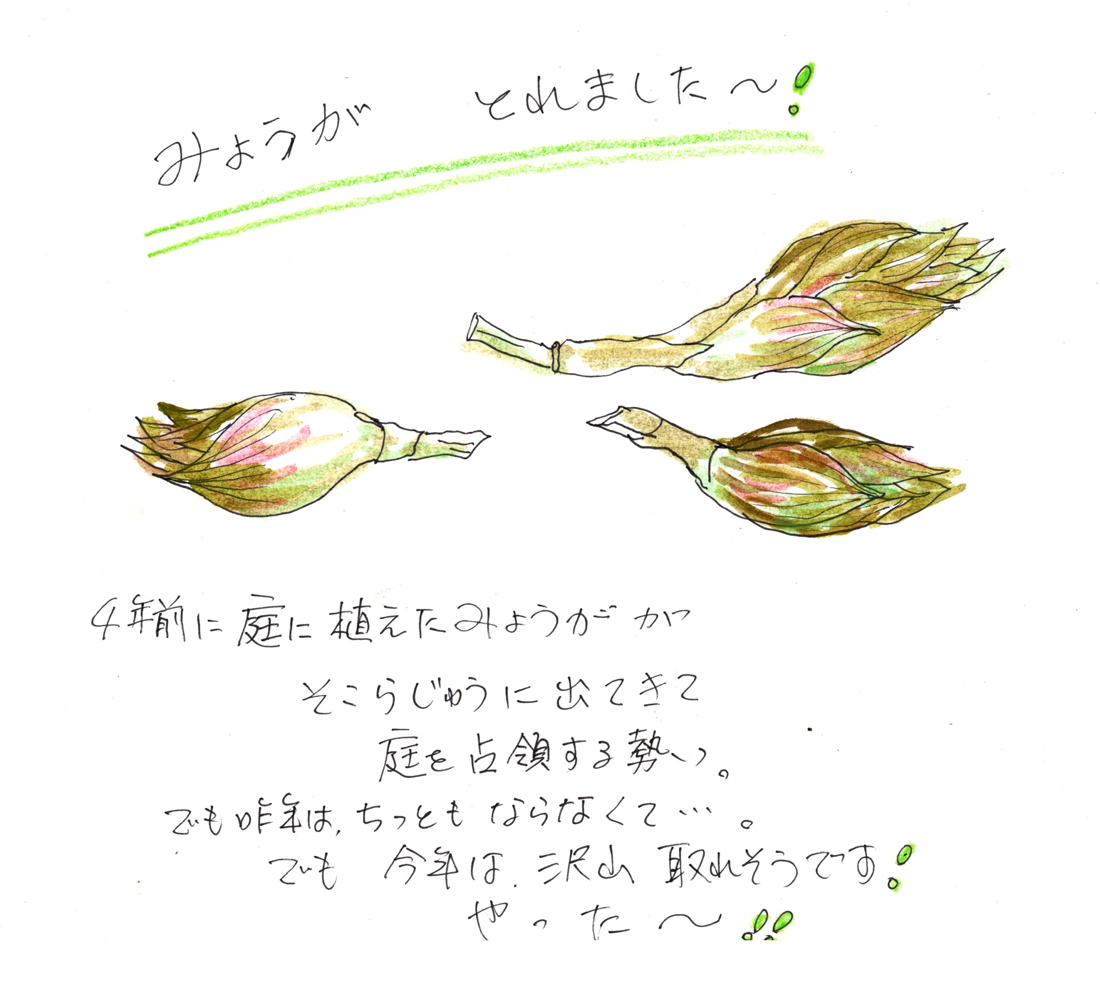 みょうが とれました〜!
4年前に庭に植えたみょうがが
そこらじゅうに出てきて
庭を占領する勢い。
でも昨年は、ちっともならなくて…。
でも 今年は、沢山 取れそうです!
やった〜!!